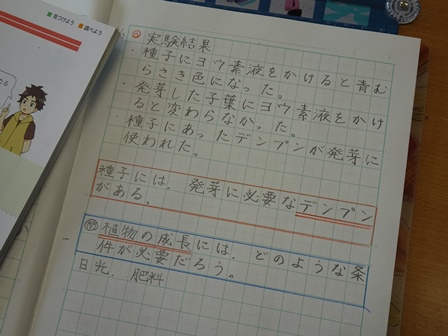 見つけよう 調べよう
実験結果
・種子にヨウ素液をかけると青む
らさき色になった。
・発芽した子葉にヨウ素液をかけ
ると変わらなかった。
・種子にあったデンプンが発芽に
使われた。
種子には、発芽に必要なデンプン
がある。
植物の成長には、どのような条
件が必要だろう。
日光、肥料